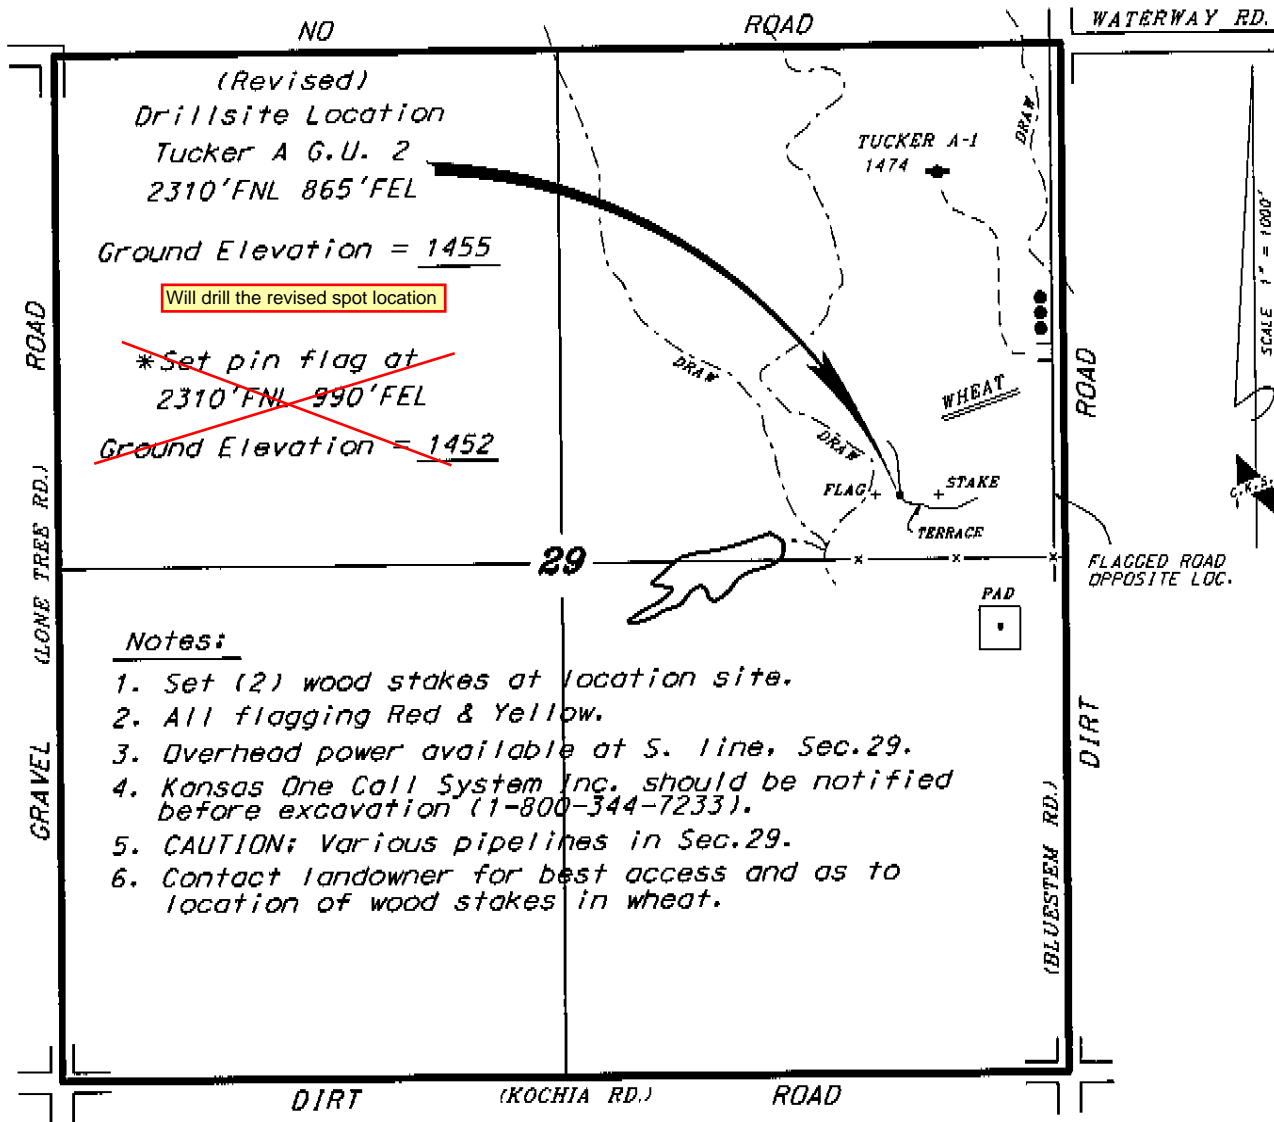 NO ROAD
WATERWAY RD.
(Revised)
Drillsite Location
Tucker A G.U. 2
2310'FNL 865'FEL
Ground Elevation = 1455
Will drill the revised spot location
*Set pin flag at
2310'FNL 990'FEL
Ground Elevation = 1452
TUCKER A-1
1474
DRAW
DRAW
DRAW
WHEAT
FLAG
STAKE
TERRACE
SCALE 1" = 1000'
C.K.S.
ROAD
(LONE TREE RD.)
GRAVEL
ROAD
DIRT
(BLUESTEM RD.)
FLAGGED ROAD
OPPOSITE LOC.
29
PAD
Notes:
1. Set (2) wood stakes at location site.
2. All flagging Red & Yellow.
3. Overhead power available at S. line, Sec.29.
4. Kansas One Call System Inc. should be notified
before excavation (1-800-344-7233).
5. CAUTION: Various pipelines in Sec.29.
6. Contact landowner for best access and as to
location of wood stakes in wheat.
DIRT (KOCHIA RD.) ROAD